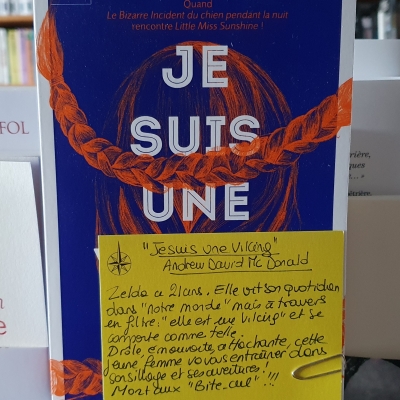 Quand
Le Bizarre Incident du chien pendant la nuit
rencontre Little Miss Sunshine !
JE
SUIS
UNE
"Je suis une viking"
Andrew David Mc Donald
Zelda a 21ans. Elle vit son quotidien
dans "notre monde" mais à travers
un filtre: "elle est une viking" et se
comporte comme telle.
Drôle, émouvante, attachante, cette
jeune femme va vous entraîner dans
son sillage et ses aventures!
Mort aux "Bite-cul"!!!
FOL